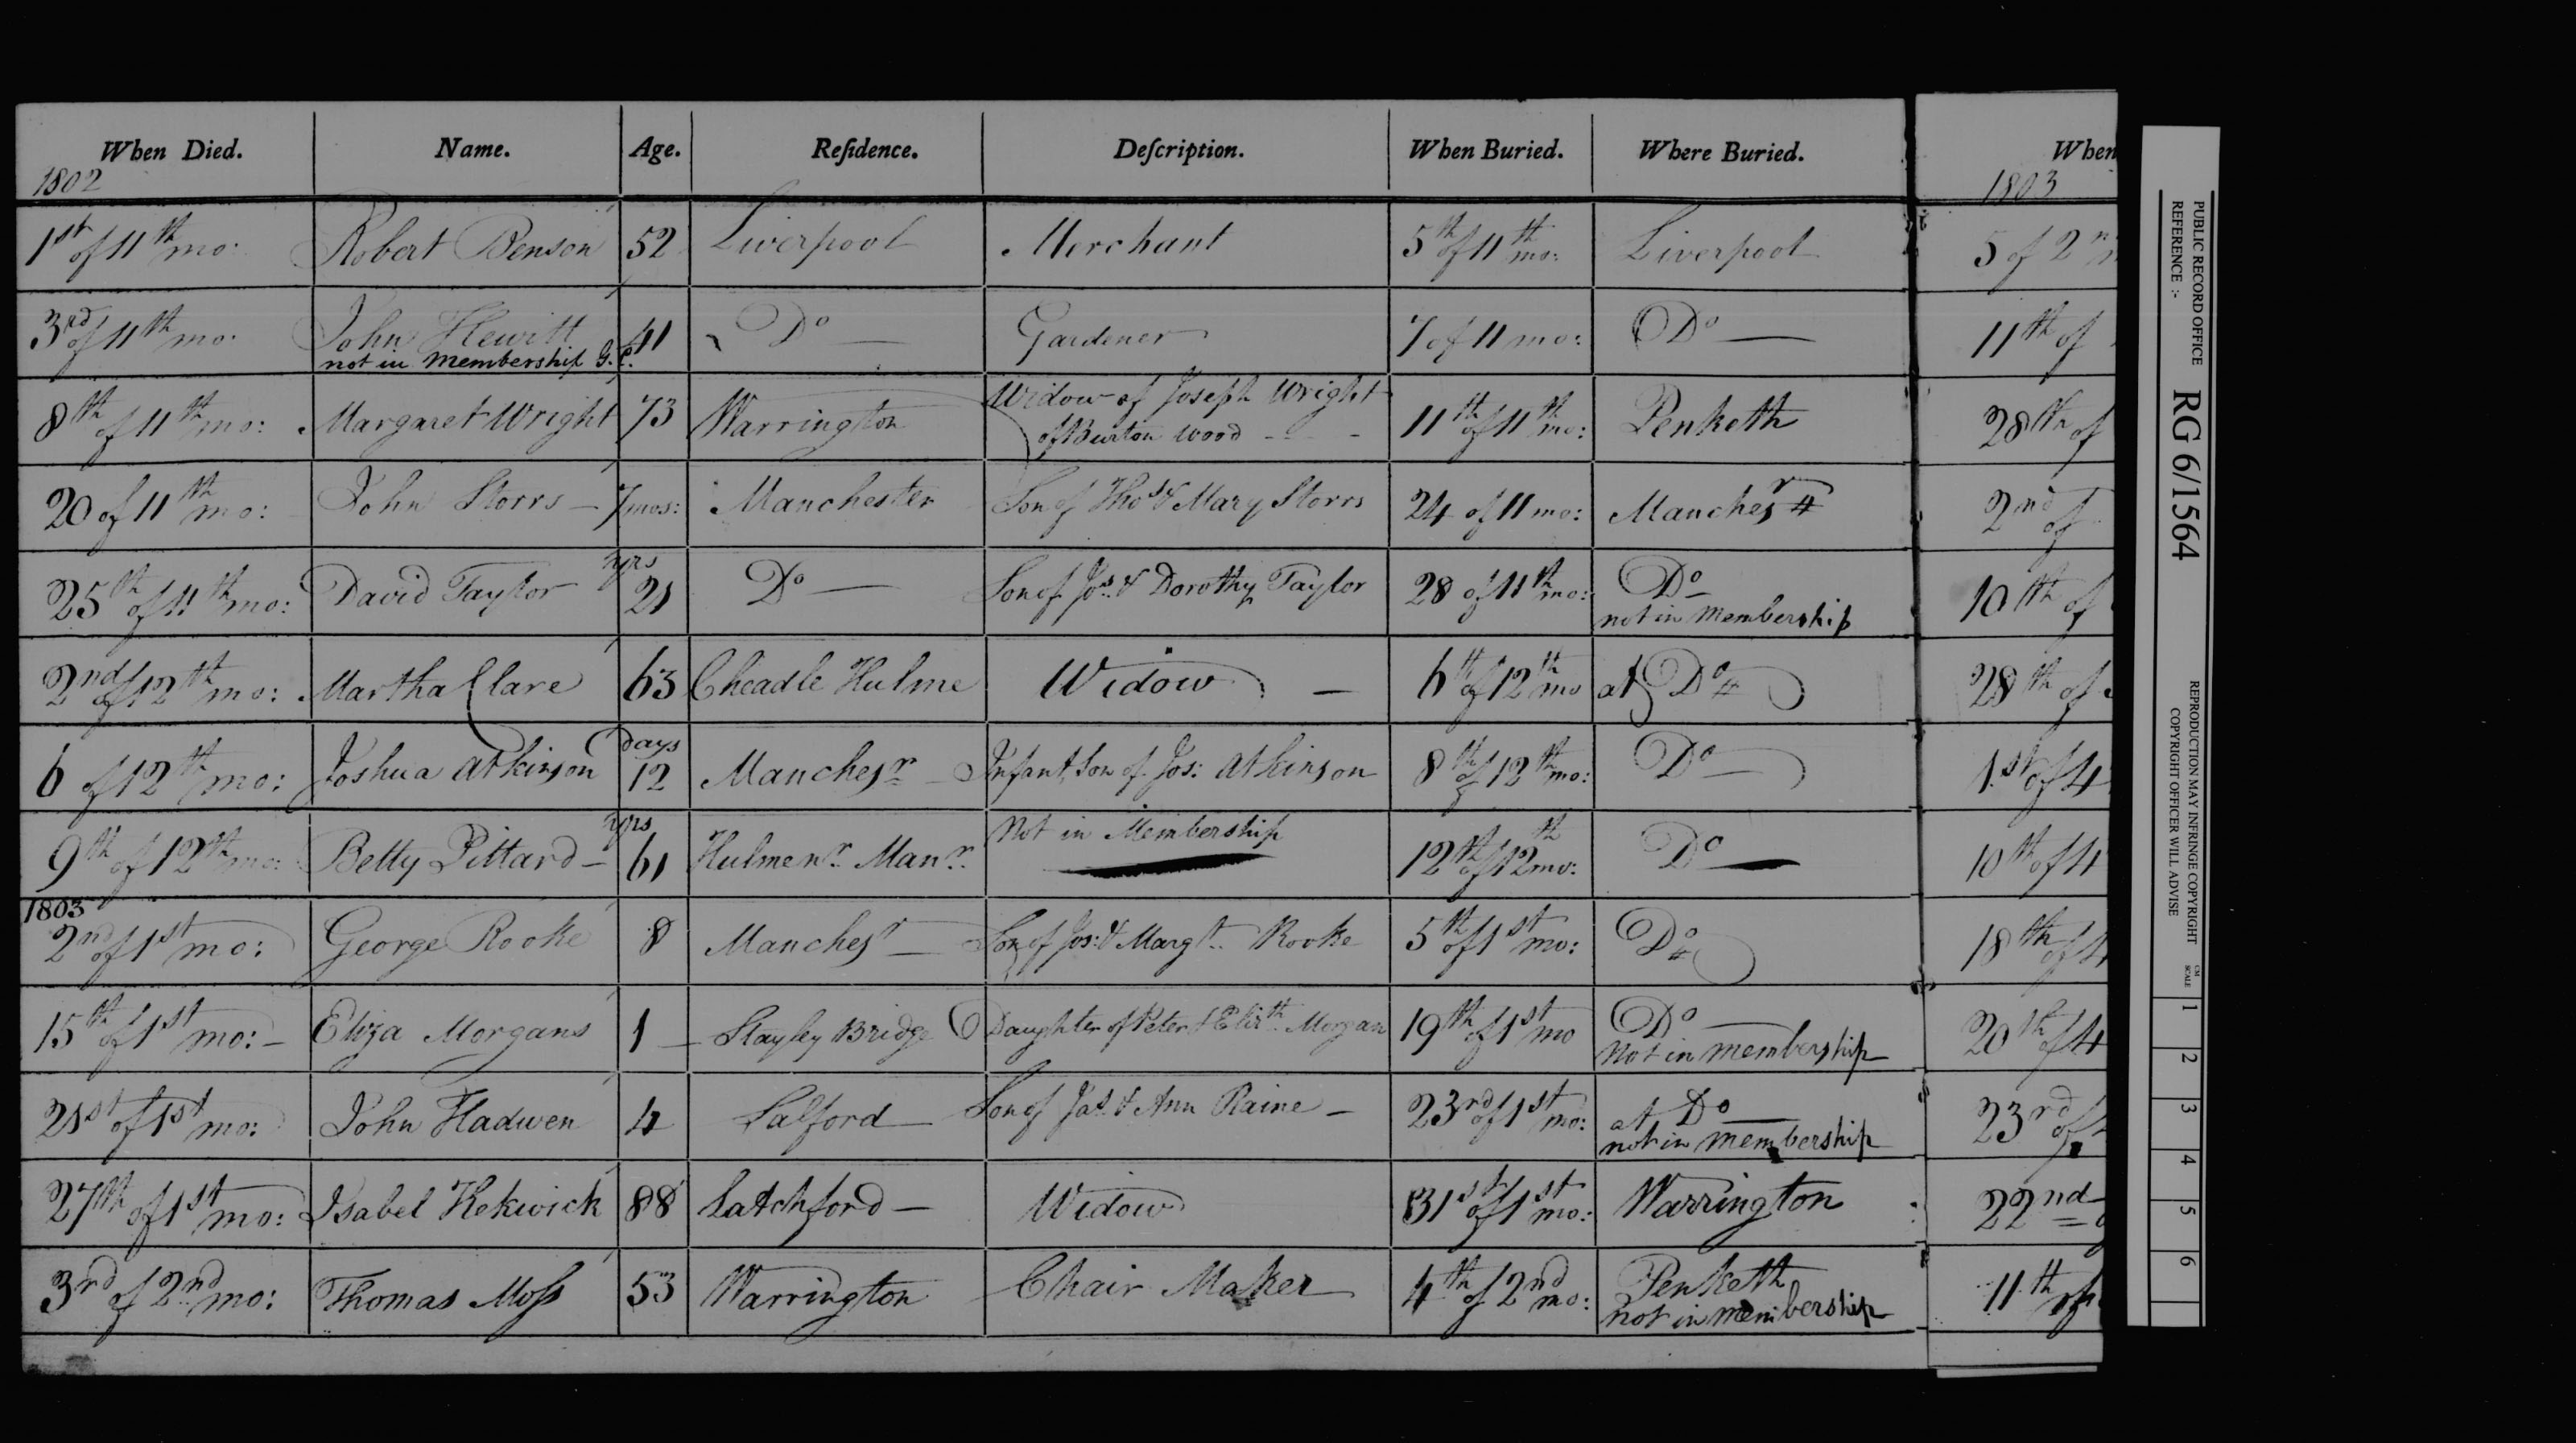 When Died. Name. Age. Reſidence. Deſcription. When Buried. Where Buried.
1802
1st of 11th mo: Robert Benson 52 Liverpool Merchant 5th of 11th mo: Liverpool
3rd of 11th mo: John Hewitt 41 Do — Gardener 7 of 11 mo: Do —
not in membership G. C.
8th of 11th mo: Margaret Wright 73 Warrington Widow of Joseph Wright 11th of 11th mo: Penketh
of Burton wood - - -
20 of 11th mo: John Storrs — 7 mos: Manchester Son of Thos & Mary Storrs 24 of 11 mo: Manchesr #
25th of 11th mo: David Taylor yrs 21 Do — Son of Jos. & Dorothy Taylor 28 of 11th mo: Do —
not in membership
2nd of 12th mo: Martha Clare 63 Cheadle Hulme Widow — 6th of 12th mo at Do #
6 of 12th mo: Joshua Atkinson days 12 Manchesr — Infant Son of Jos: Atkinson 8th of 12th mo: Do —
9th of 12th mo: Betty Pittard — yrs 61 Hulme nr Manr Not in Membership 12th of 12th mo: Do —
1803
2nd of 1st mo: George Rooke 8 Manchesr — Son of Jos: & Margt. Rooke 5th of 1st mo: Do #
15th of 1st mo: — Eliza Morgans 1 — Stayley Bridge Daughter of Peter & Elizth Morgan 19th of 1st mo Do —
Not in membership
21st of 1st mo: John Hadwen 4 Salford — Son of Jas. & Ann Raine — 23rd of 1st mo: at Do —
not in membership
27th of 1st mo: Isabel Kekwick 88 Latchford — Widow 31st of 1st mo: Warrington
3rd of 2nd mo: Thomas Moſs 53 Warrington Chair Maker 4th of 2nd mo: Penketh
not in membership
When
1803
5 of 2n
11th of
28th of
2nd of
10th of
28th of
1st of 4
10th of 4
18th of 4
20th of 4
23rd of
22nd
11th of
PUBLIC RECORD OFFICE
REFERENCE :-
RG 6/1564
REPRODUCTION MAY INFRINGE COPYRIGHT
COPYRIGHT OFFICER WILL ADVISE
CM
SCALE
1 2 3 4 5 6